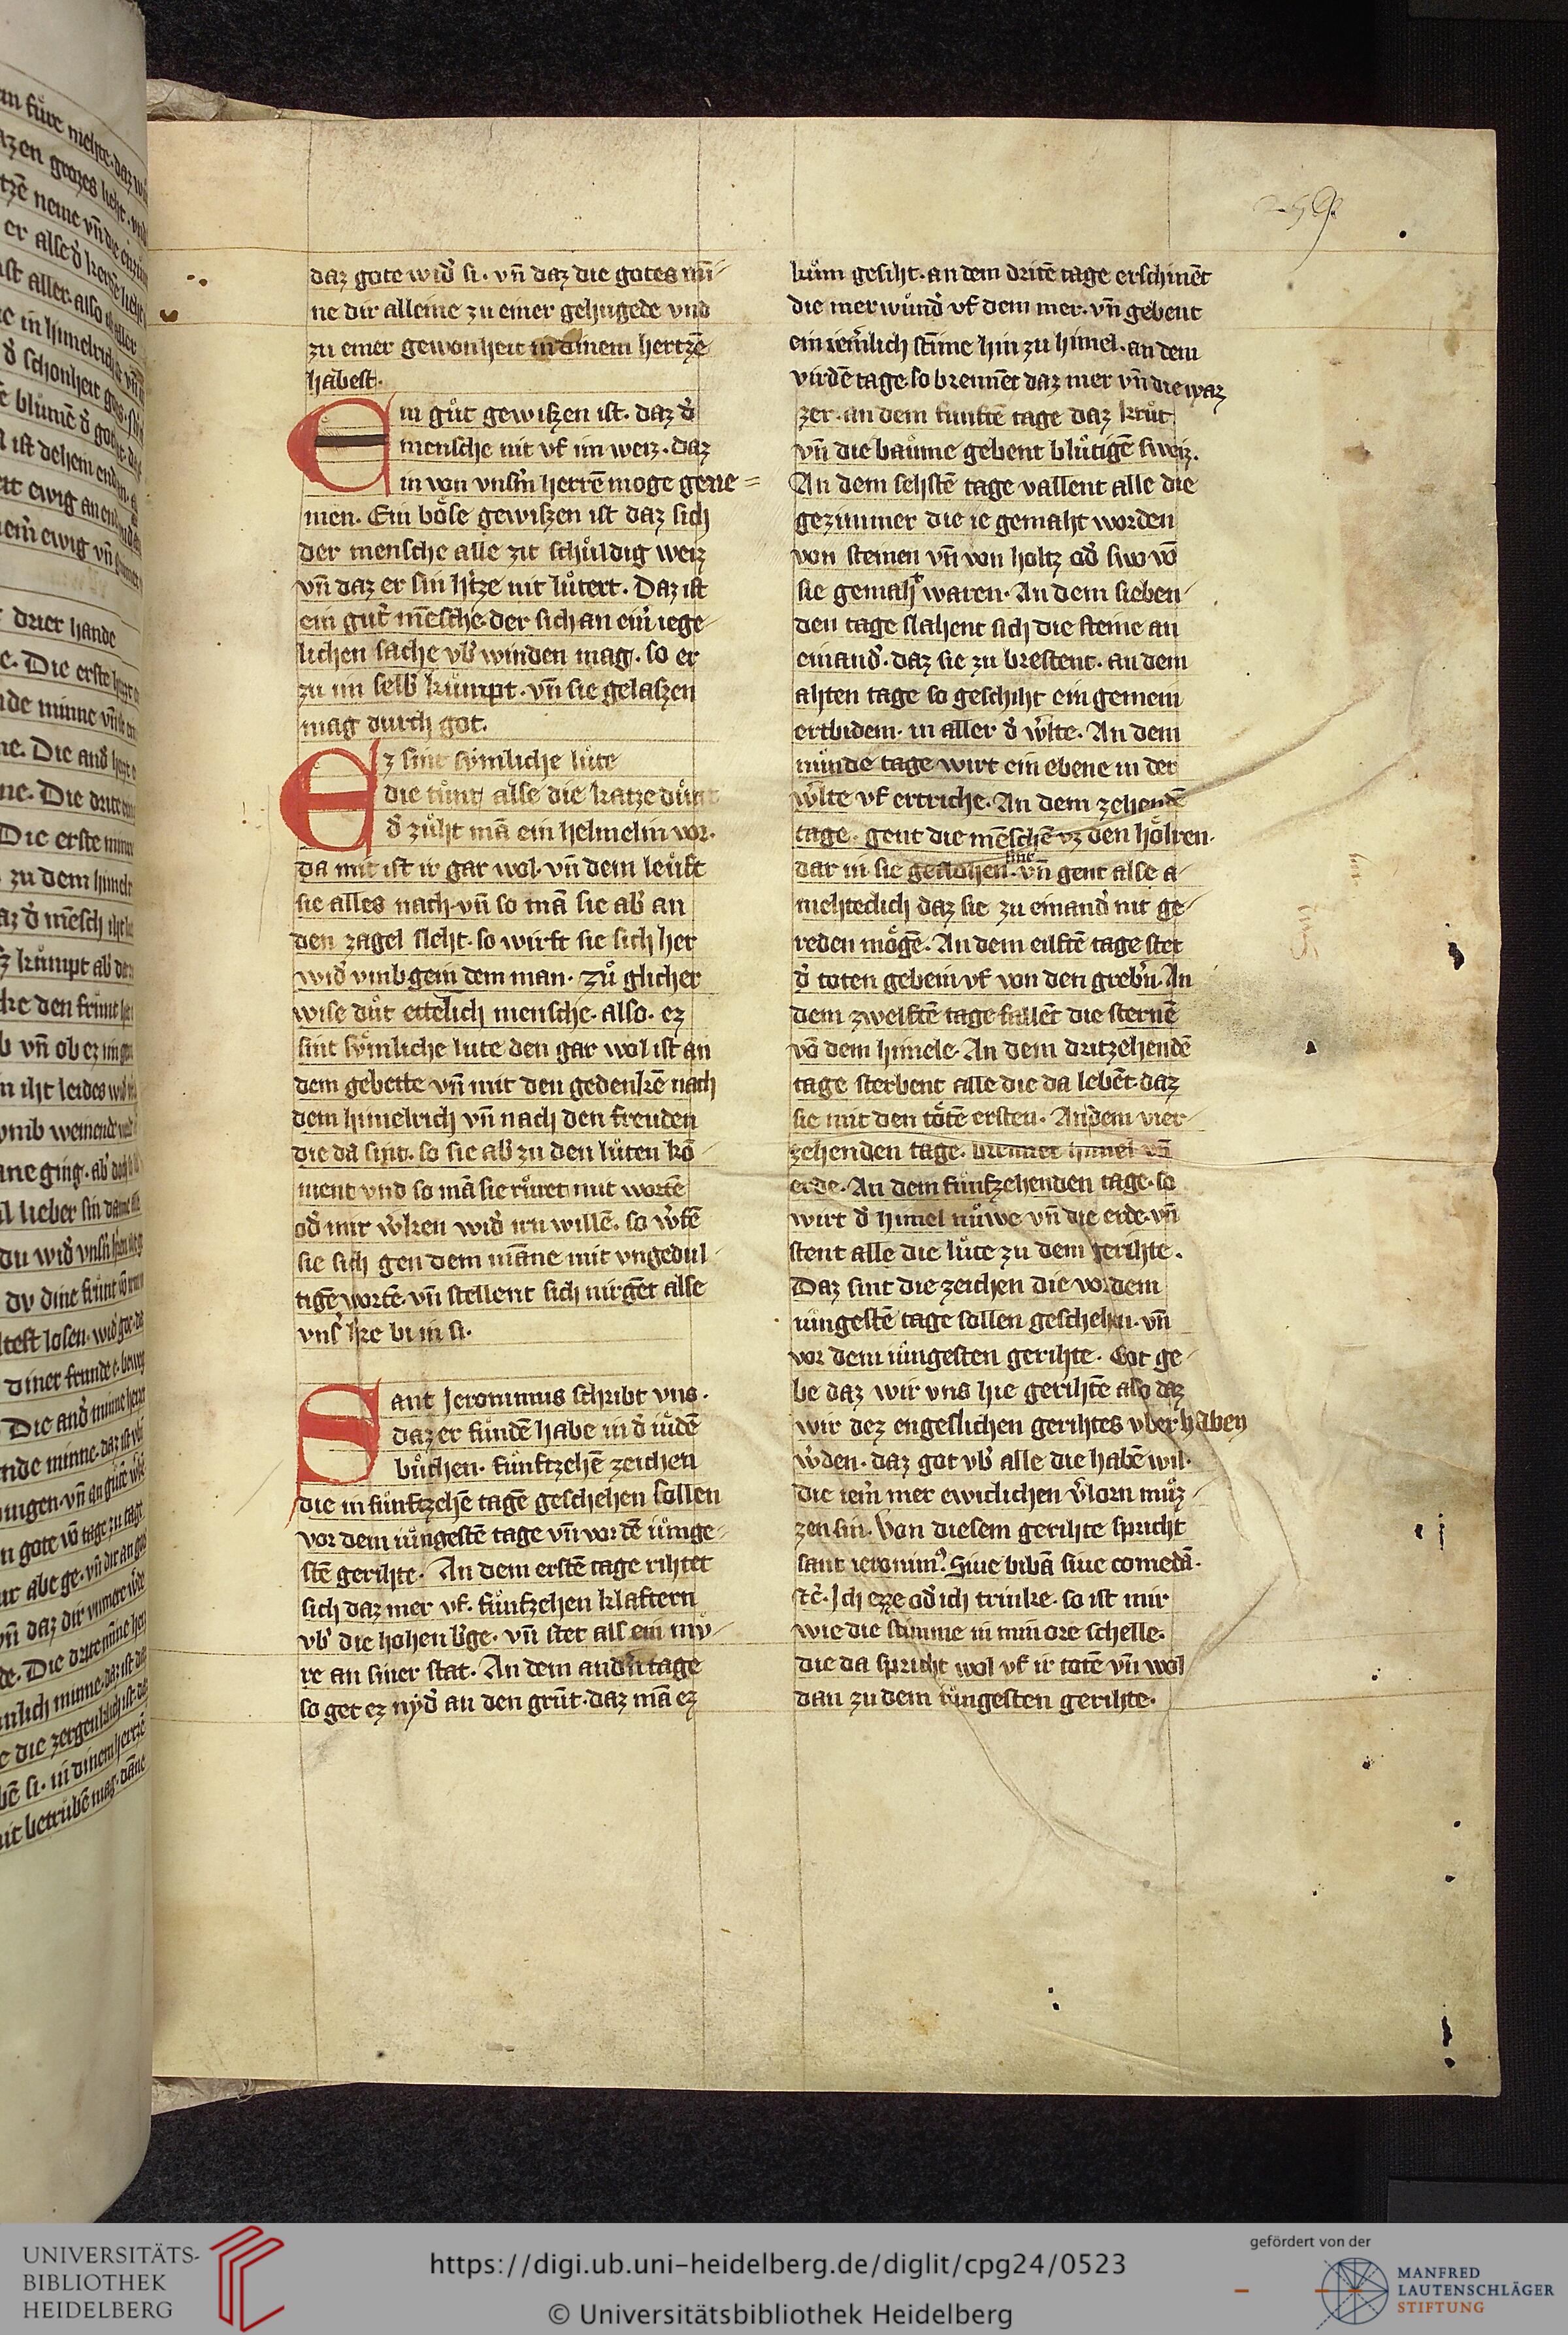 259
daz gote wid͛ si. vn̄ daz die gotes mī
ne dir alleine zu einer gehugede vnd
zu einer gewonheit in dinem hertzē
habest.
Ein gůt gewiszen ist. daz d͛
mensche nit vf im weiz. daz
in von vnsm̄ herrē moge gene=
men. Ein bőse gewiszen ist daz sich
der mensche alle zit schůldig weiz
vn̄ daz er sin h͛tze nit lůtert. Daz ist
ein gut͛ mēsche. der sich an ein͛ iege
lichen sache vb͛ winden mag. so er
zu im selb͛ kůmpt. vn̄ sie gelaszen
mag durch got.
Ez sint sőmliche lůte
die tůnt alse die katze důnt
d͛ zůht mā ein helmelin vor.
da mit ist ir gar wol. vn̄ dem leůft
sie alles nach. vn̄ so mā sie ab͛ an
den zagel sleht. so wirft sie sich her
wid͛ vmb gein dem man. Zů glicher
wise důt ettelich mensche. also. ez
sint sőmliche lute den gar wol ist an
dem gebette vn̄ mit den gedenkē nach
dem himelrich vn̄ nach den freuden
die da sint. so sie ab͛ zu den lůten kō
ment vnd so mā sie růret mit wortē
od͛ mit w͛ken wid͛ irn willē. so w͛fē
sie sich gen dem māne mit vngedul
tigē wortē. vn̄ stellent sich nirgēt alse
vns͛ h͛re bi in si.
Sant Jeronimus schribt vns.
daz er fundē habe in d͛ iůdē
bůchen. fůnftzehē zeichen
die in fůnftzehē tagē geschehen sollen
vor dem iůngestē tage vn̄ vor dē iůnge
stē gerihte. An dem erstē tage rihtet
sich daz mer vf. fůnfzehen klaftern
vb͛ die hohen b͛ge. vn̄ stet als ein mv
re an siner stat. An dem and͛n tage
so get ez nyd͛ an den grůt. daz mā ez
kům gesiht. an dem dritē tage erschinēt
die mer wůnd͛ vf dem mer. vn̄ gebent
ein iem͛lich stīme hin zu himel. an dem
virdē tage. so brennēt daz mer vn̄ die waz
zer. an dem funftē tage daz krůt
vn̄ die baůme gebent blůtigē sweiz.
An dem sehstē tage vallent alle die
gezimmer die ie gemaht worden
von steinen vn̄ von holtz od͛ swo vō
sie gemaht waren. An dem sieben
den tage slahent sich die steine an
einand͛. daz sie zu brestent. an dem
ahten tage so geschiht ein gemein
ertbidem. in aller d͛ w͛lte. An dem
nůnde tage wirt ein ebene in der
w͛lte vf ertriche. An dem zehendē
tage. gent die mēschē vz den hőlren.
dar in sie geflohen sint. vn̄ gent alse a
mehteclich daz sie zu einand͛ nit ge
reden mőgē. An dem eilftē tage stet
d͛ toten gebein vf von den greb͛n. An
dem zwelftē tage fallēt die sternē
vō dem himele. An dem dritzehendē
tage sterbent alle die da lebēt. daz
sie mit den tőtē ersten. An dem vier
zehenden tage. brennet himel vn̄
erde. An dem fůnfzehenden tage. so
wirt d͛ himel nůwe vn̄ die erde. vn̄
stent alle die lůte zu dem gerihte.
Daz sint die zeichen die vor dem
iůngestē tage sollen geschehn. vn̄
vor dem iůngesten gerihte. Got ge
be daz wir vns hie gerihtē also daz
wir dez engeslichen gerihtes vber haben
w͛den. daz got vb͛ alle die habē wil.
die iem͛ mer ewiclichen v͛lorn můz
zen sin. Von diesem gerihte spricht
sant ieronim⁹. Siue bibā siue comedā.
⁊c̄. Jch ezze od͛ ich trinke. so ist mir
wie die stimme in min ore schelle.
die da spricht wol vf ir totē vn̄ wol
dan zu dem iůngesten gerihte.
UNIVERSITÄTS-
BIBLIOTHEK
HEIDELBERG
https://digi.ub.uni-heidelberg.de/diglit/cpg24/0523
© Universitätsbibliothek Heidelberg
gefördert von der
MANFRED
LAUTENSCHLÄGER
STIFTUNG